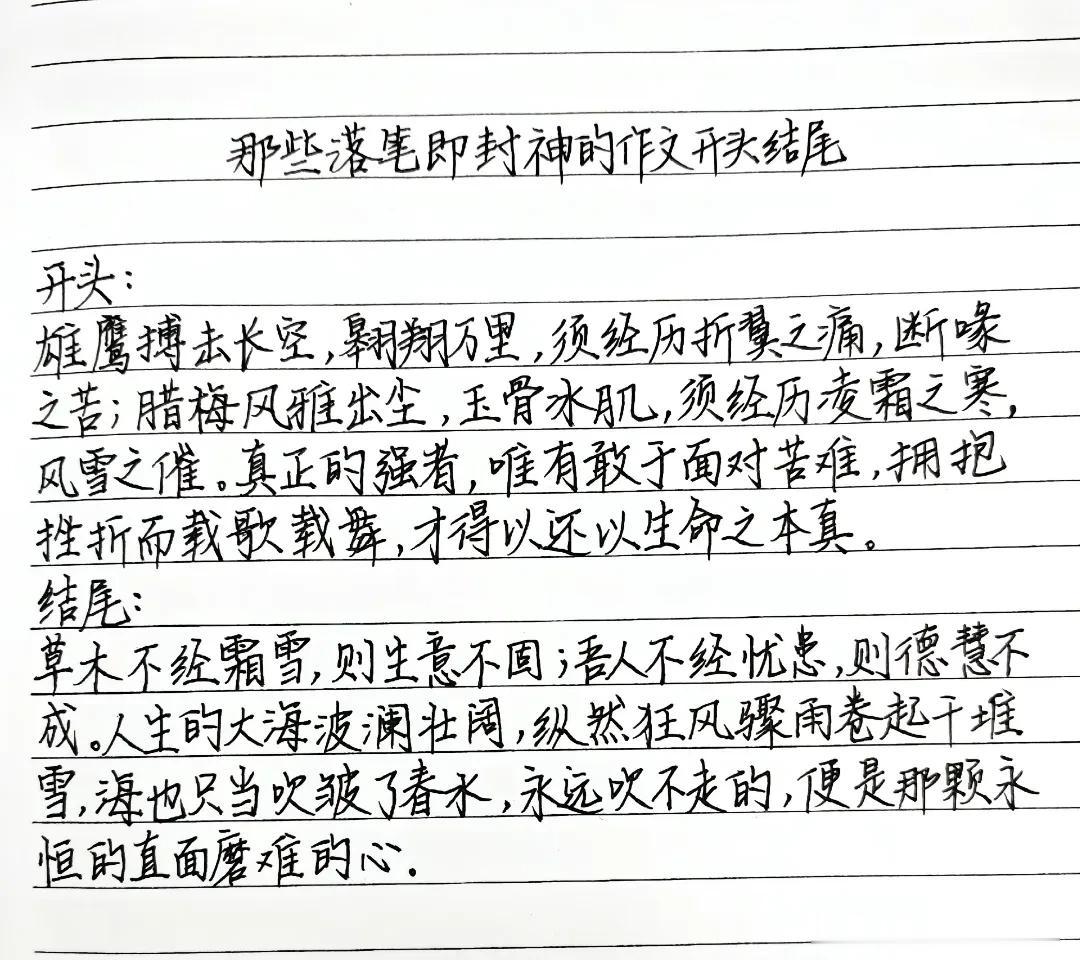 那些落笔即封神的作文开头结尾
开头：
雄鹰搏击长空，翱翔万里，须经历折翼之痛，断喙
之苦；腊梅风雅出尘，玉骨冰肌，须经历凌霜之寒，
风雪之催。真正的强者，唯有敢于面对苦难，拥抱
挫折而载歌载舞，才得以还以生命之本真。
结尾：
草木不经霜雪，则生意不固；吾人不经忧患，则德慧不
成。人生的大海波澜壮阔，纵然狂风骤雨卷起千堆
雪，海也只当吹皱了春水，永远吹不走的，便是那颗永
恒的直面磨难的心.